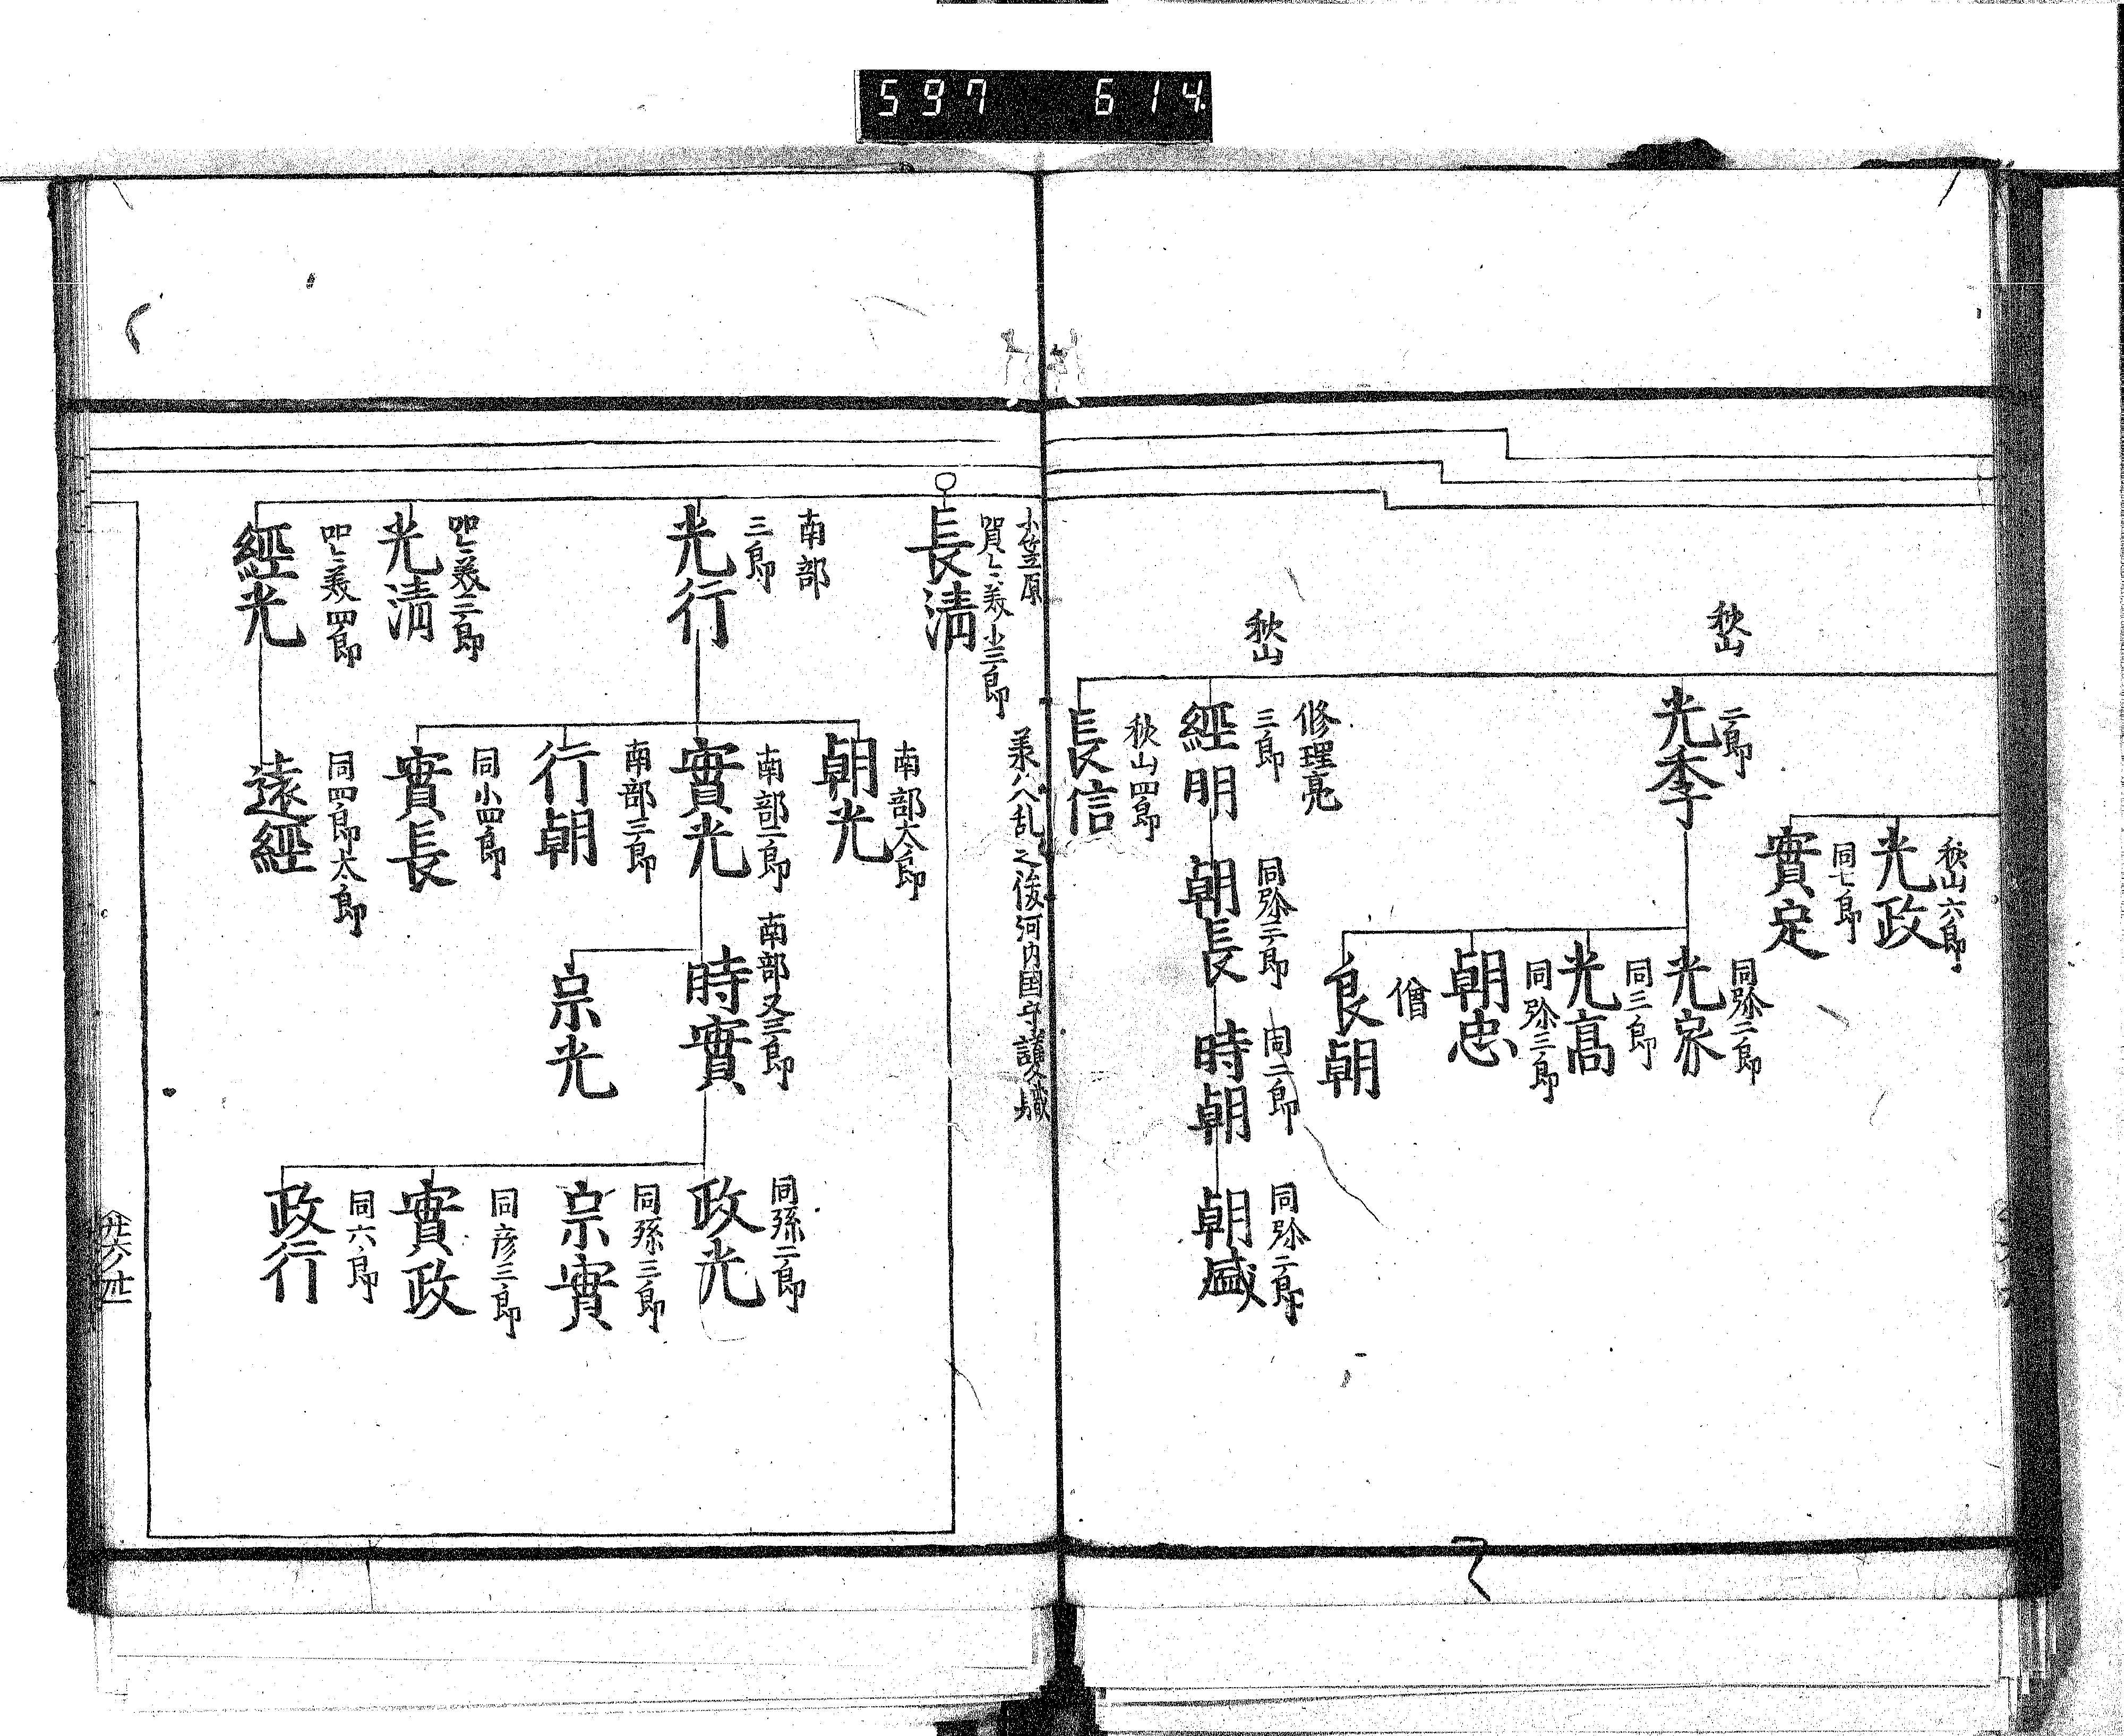 597 614
秋山六郎
光政
同七郎
實定
秋山
二郎
光季
同弥二郎
光家
同三郎
光高
同弥三郎
朝忠
僧
良朝
秋山
修理亮
三郎
經明
同弥二郎
朝長
同二郎
時朝
同弥二郎
朝盛
秋山四郎
長信
小笠原
賀々美小二郎
長清
承久乱之後河内国守護職
南部
三郎
光行
南部太郎
朝光
南部二郎
實光
南部又二郎
時實
同孫二郎
政光
同孫三郎
宗實
同彦三郎
實政
同六郎
政行
宗光
南部三郎
行朝
同小四郎
實長
光清
經光
同四郎太郎
遠經